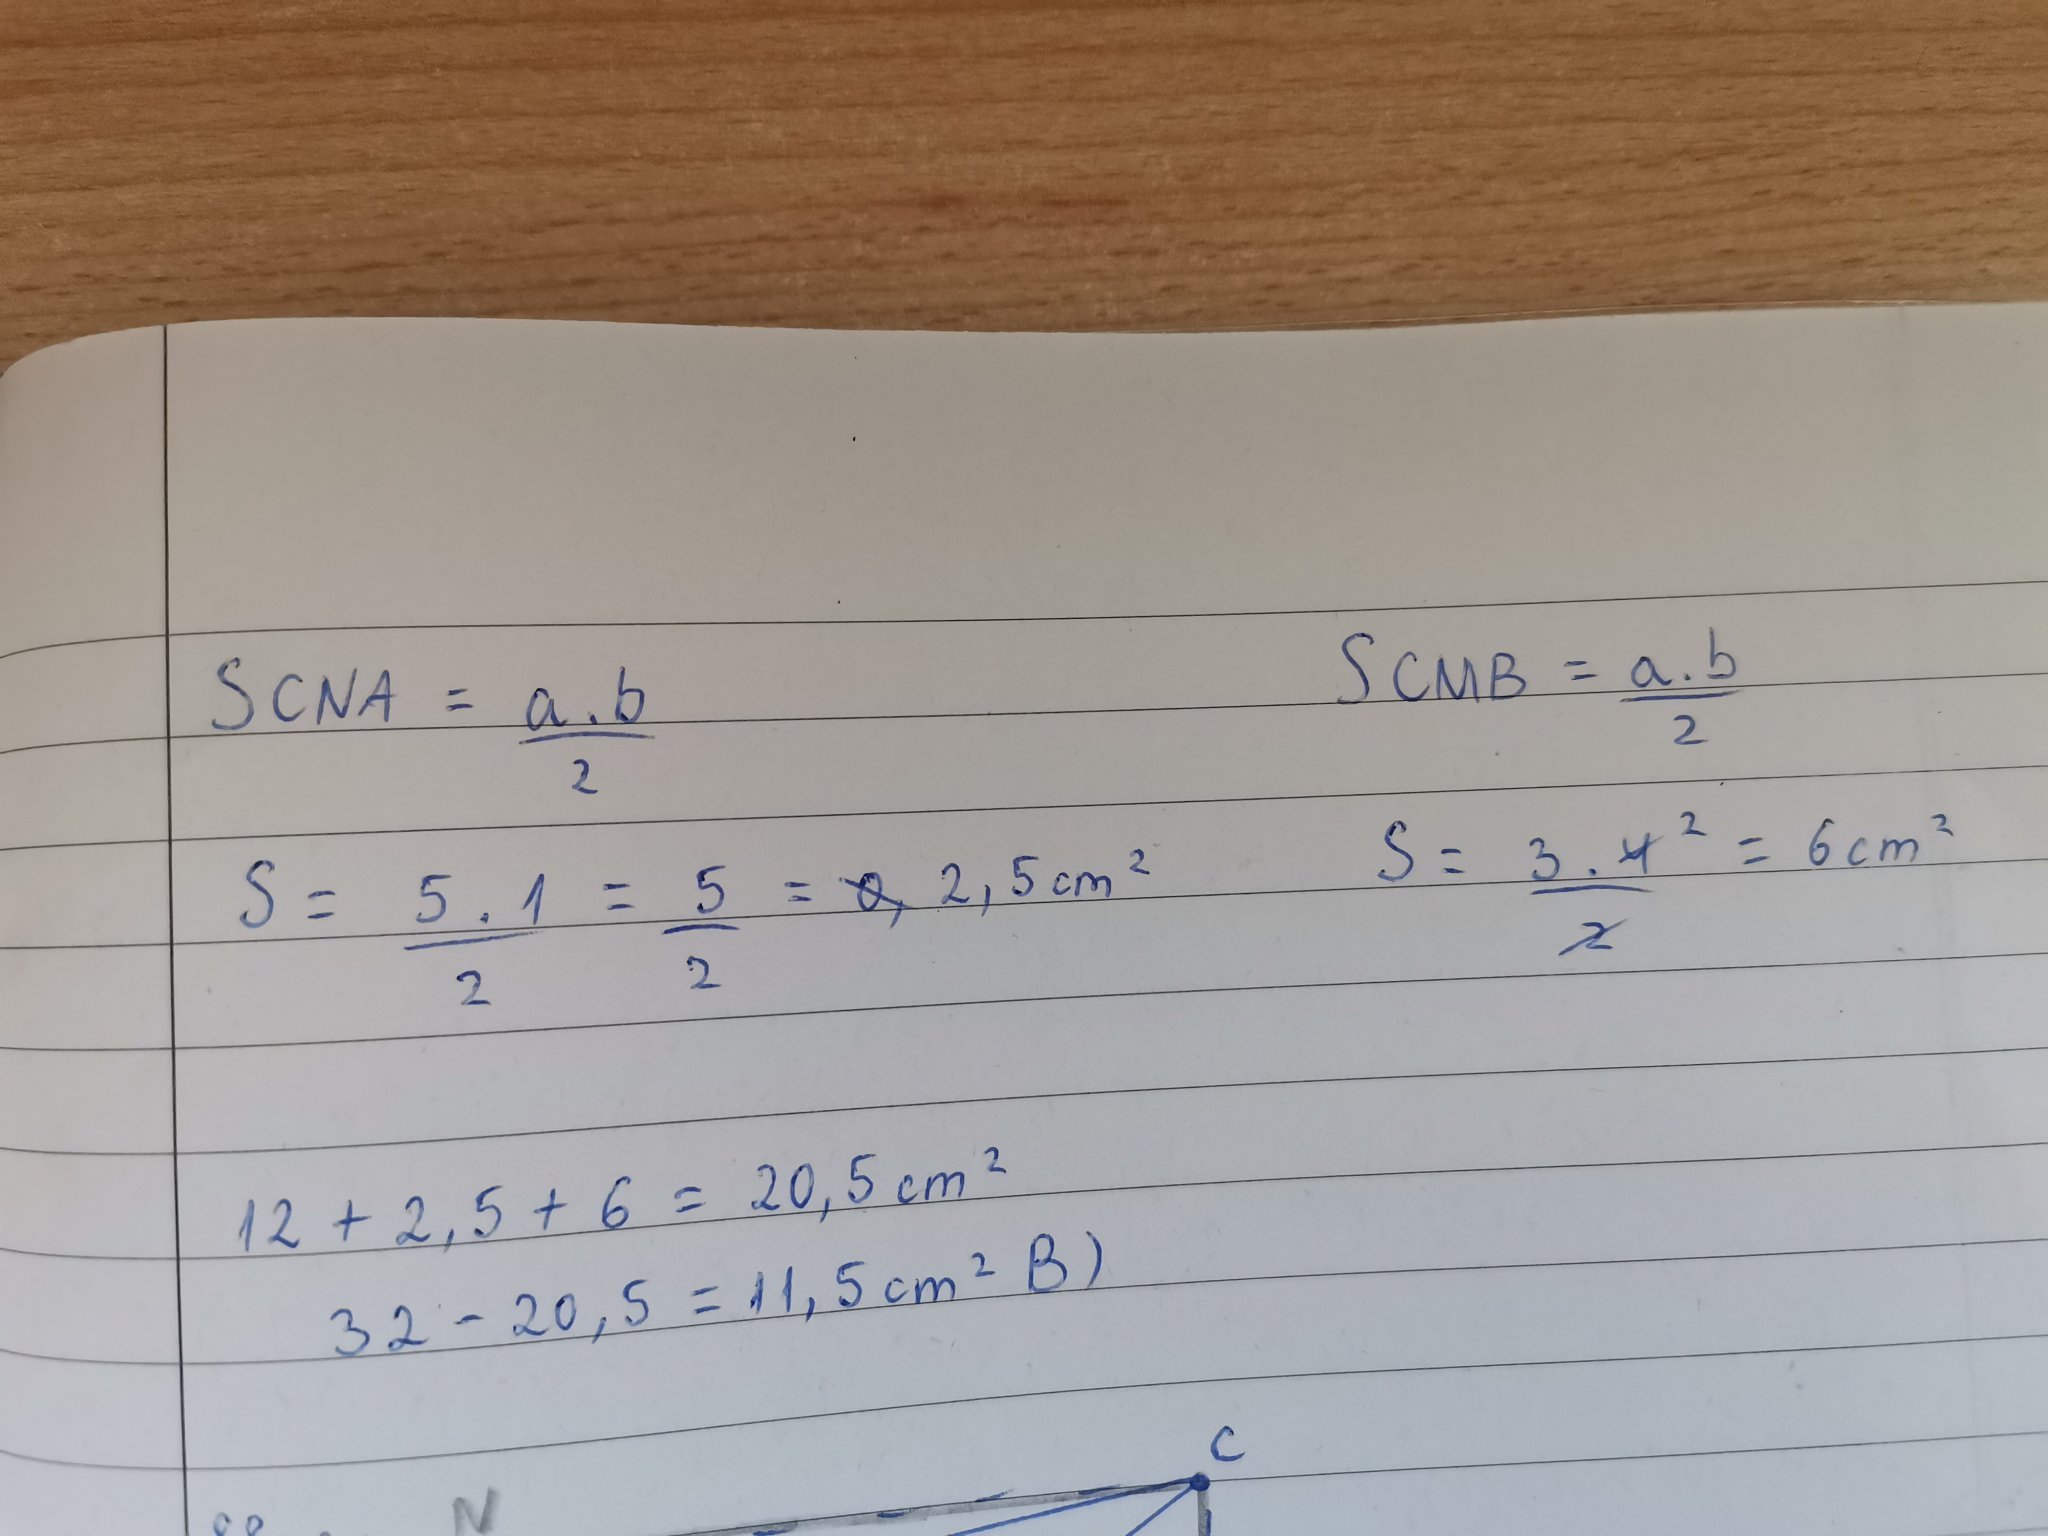 SCNA = a.b/2 SCMB = a.b/2
S = 5.1/2 = 5/2 = 2,5cm² S = 3.4²/2 = 6cm²
12 + 2,5 + 6 = 20,5cm²
32 - 20,5 = 11,5cm² B)
C
N